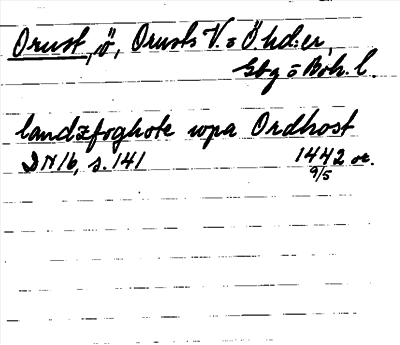 Orust, ö, Orusts V. o Ö hd:er,
Gbg o Boh. l.
landzfoghote wpa Ordhost
DN 16, s. 141 1442 or.
9/5